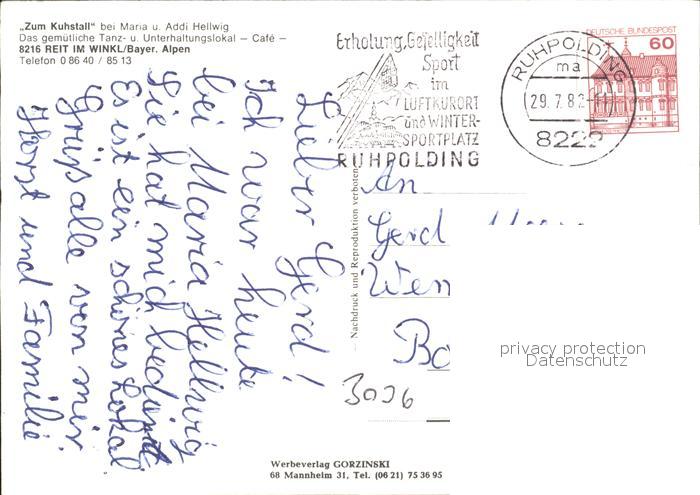 „Zum Kuhstall" bei Maria u. Addi Hellwig
Das gemütliche Tanz- u. Unterhaltungslokal — Café —
8216 REIT IM WINKL/Bayer. Alpen
Telefon 0 86 40 / 85 13
Lieber Gerd!
Ich war heute
bei Maria Hellwig
Sie hat mich bedient
Es ist ein schönes Lokal
Grüß alle von mir.
Horst und Familie
Erholung, Geselligkeit
Sport
im
LUFTKURORT
und WINTER-
SPORTPLATZ
RUHPOLDING
RUHPOLDING
ma
29.7.82-11
8222
DEUTSCHE BUNDESPOST
60
Nachdruck und Reproduktion verboten
An
Gerd
Wen
Bo
3006
privacy protection
Datenschutz
Werbeverlag GORZINSKI
68 Mannheim 31, Tel. (06 21) 75 36 95